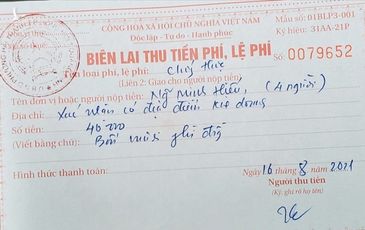 CỘNG HÒA XÃ HỘI CHỦ NGHĨA VIỆT NAM
Độc lập - Tự do - Hạnh phúc
Mẫu số: 01BLP3-001
Ký hiệu: 31AA-21P
BIÊN LAI THU TIỀN PHÍ, LỆ PHÍ
Số: 0079652
Tên loại phí, lệ phí: Chứng thực
(Liên 2: Giao cho người nộp tiền)
Tên đơn vị hoặc người nộp tiền: Ng Minh Hiếu, (4 người)
Địa chỉ: Xác nhận có đủ điều
Số tiền: 40 000
(Viết bằng chữ): Bốn mươi
Hình thức thanh toán:
Ngày 16 tháng 8 năm 2021
Người thu tiền
(Ký, ghi rõ họ tên)